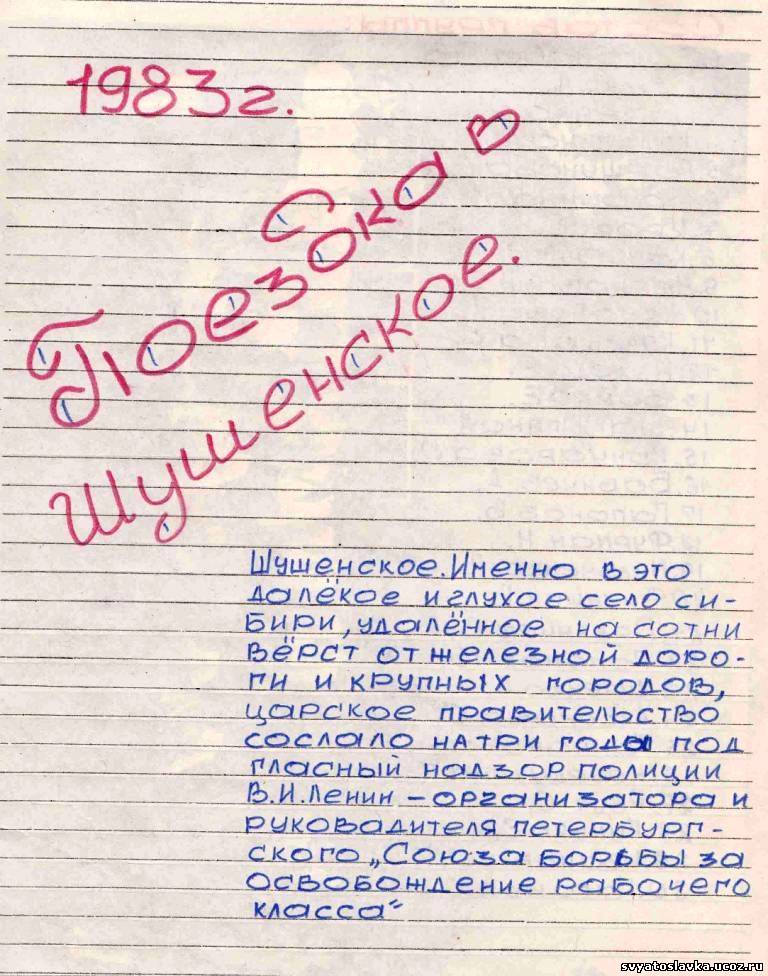 1983г.
Поездка в
Шушенское.
Шушенское. Именно в это
далёкое и глухое село си-
бири, удалённое на сотни
вёрст от железной доро-
ги и крупных городов,
царское правительство
сослало на три года под
гласный надзор полиции
В.И.Ленин – организатора и
руководителя петербург-
ского „Союза борьбы за
освобождение рабочего
класса"
svyatoslavka.ucoz.ru